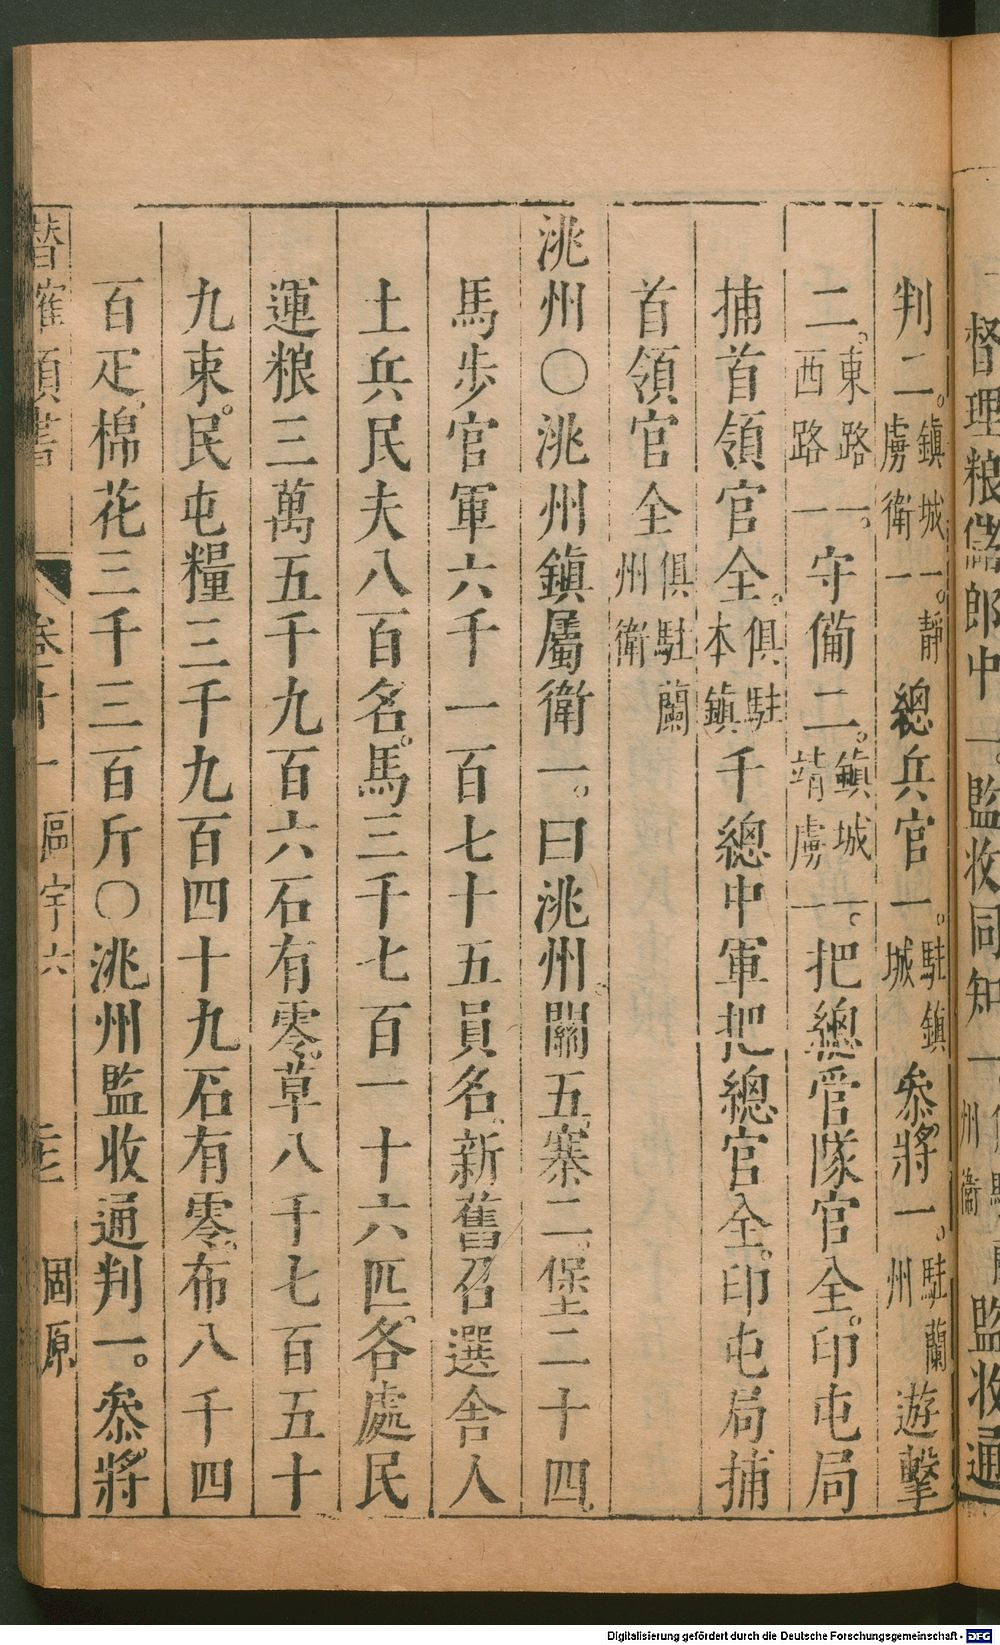 督理粮儲郎中一。監收同知一 監收通
判二。鎮城一。靜虜衛一 總兵官一。駐鎮城 參將一。駐蘭州 遊擊
二。東路一。西路一 守備二。鎮城一。靖虜一 把總管隊官全。印屯局
捕首領官全。俱駐本鎮 千總中軍把總官全。印屯局捕
首領官全 俱駐蘭州衛
洮州〇洮州鎮屬衛一。曰洮州。關五。寨二。堡二十四。
馬步官軍六千一百七十五員名。新舊召選舍人
土兵民夫八百名。馬三千七百一十六匹。各處民
運粮三萬五千九百六石有零。草八千七百五十
九束。民屯糧三千九百四十九石有零。布八千四
百疋。棉花三千三百斤〇洮州監收通判一。參將
卷十一 區宇六 固原
Digitalisierung gefördert durch die Deutsche Forschungsgemeinschaft - DFG